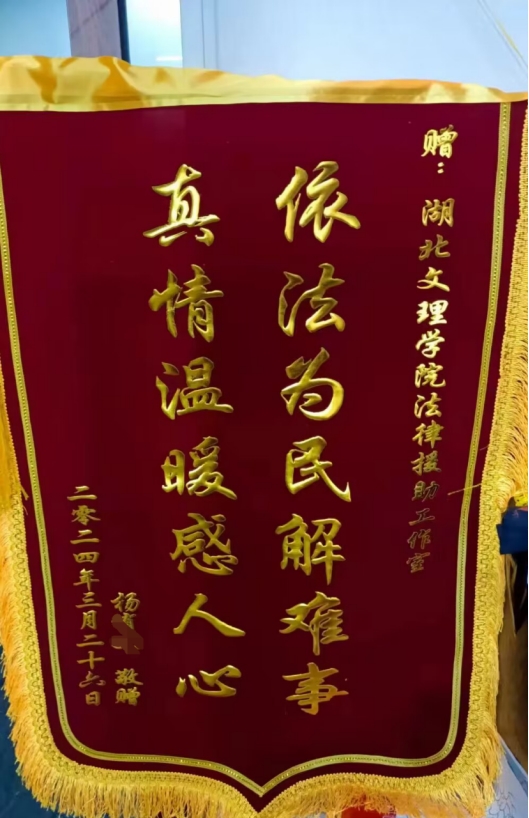 赠：湖北文理学院法律援助工作室
依法为民解难事
真情温暖感人心
杨 敬赠
二零二四年三月二十六日